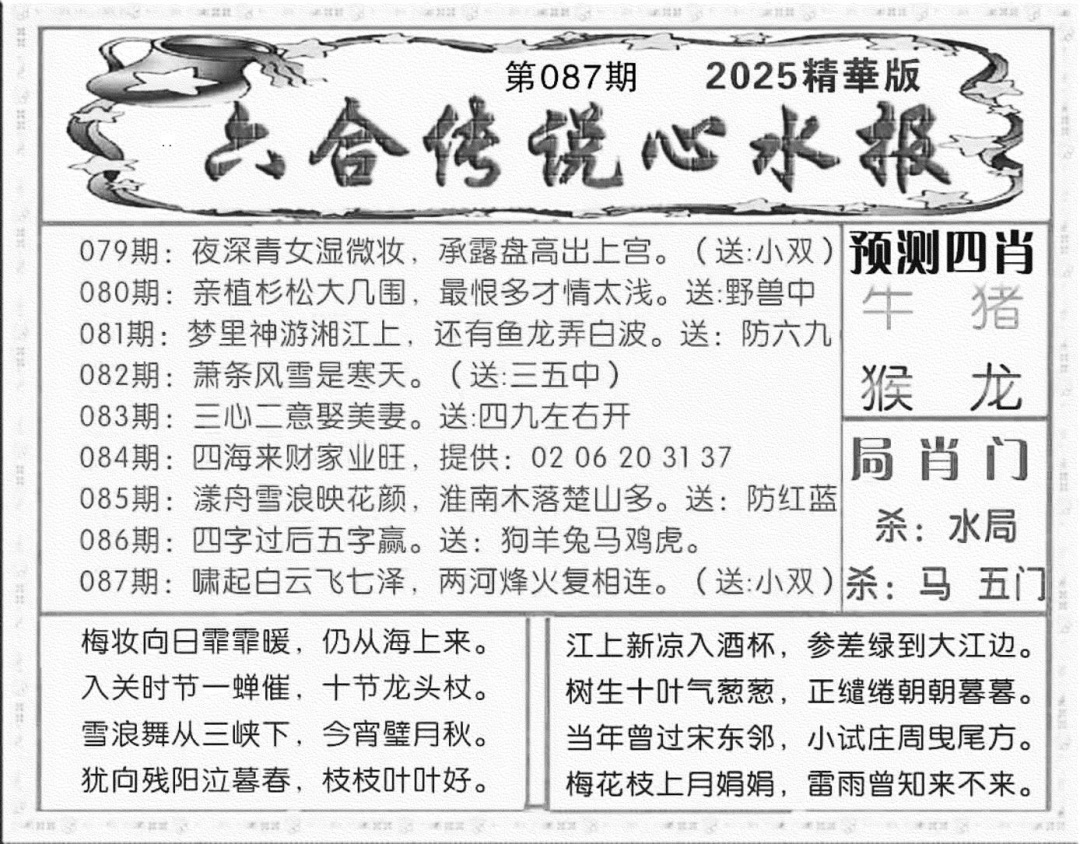 第087期 2025精華版
六合传说心水报
079期：夜深青女湿微妆，承露盘高出上宫。（送:小双）
080期：亲植杉松大几围，最恨多才情太浅。送:野兽中
081期：梦里神游湘江上，还有鱼龙弄白波。送：防六九
082期：萧条风雪是寒天。（送:三五中）
083期：三心二意娶美妻。送:四九左右开
084期：四海来财家业旺，提供：02 06 20 31 37
085期：漾舟雪浪映花颜，淮南木落楚山多。送：防红蓝
086期：四字过后五字赢。送：狗羊兔马鸡虎。
087期：啸起白云飞七泽，两河烽火复相连。（送:小双）
预测四肖
牛 猪
猴 龙
局肖门
杀：水局
杀：马 五门
梅妆向日霏霏暖，仍从海上来。
入关时节一蝉催，十节龙头杖。
雪浪舞从三峡下，今宵璧月秋。
犹向残阳泣暮春，枝枝叶叶好。
江上新凉入酒杯，参差绿到大江边。
树生十叶气葱葱，正缱绻朝朝暮暮。
当年曾过宋东邻，小试庄周曳尾方。
梅花枝上月娟娟，雷雨曾知来不来。